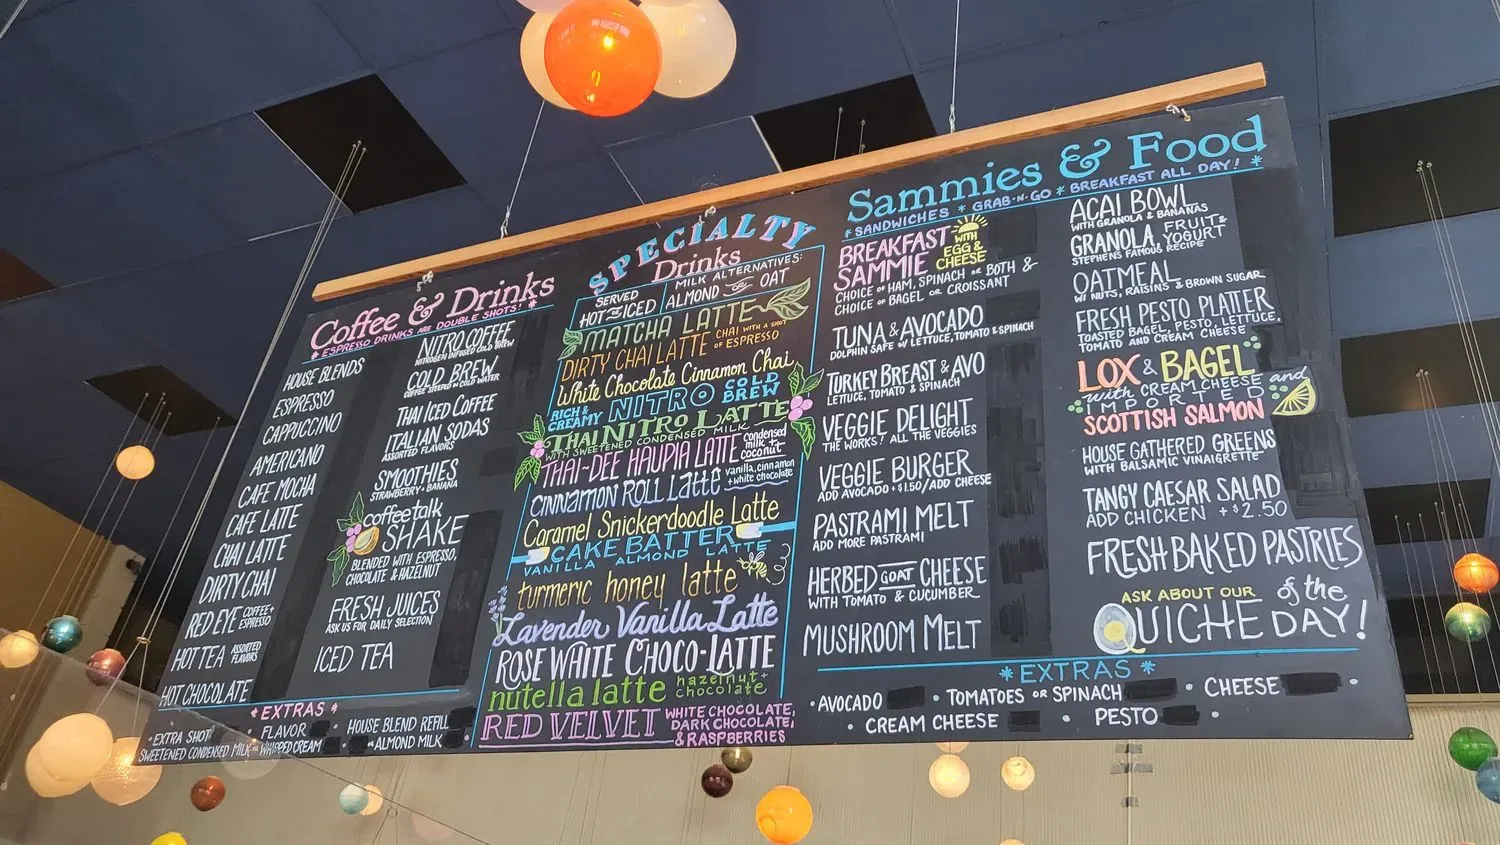 Coffee & Drinks
* ESPRESSO DRINKS ARE DOUBLE SHOTS! *
HOUSE BLENDS
ESPRESSO
CAPPUCCINO
AMERICANO
CAFE MOCHA
CAFE LATTE
CHAI LATTE
DIRTY CHAI
RED EYE COFFEE + ESPRESSO
HOT TEA ASSORTED FLAVORS
HOT CHOCOLATE
NITRO COFFEE
NITROGEN INFUSED COLD BREW
COLD BREW
COFFEE STEEPED IN COLD WATER
THAI ICED COFFEE
ITALIAN SODAS
ASSORTED FLAVORS
SMOOTHIES
STRAWBERRY + BANANA
coffee talk
SHAKE
BLENDED WITH ESPRESSO,
CHOCOLATE & HAZELNUT
FRESH JUICES
ASK US FOR DAILY SELECTION
ICED TEA
* EXTRAS *
• EXTRA SHOT
• FLAVOR
• HOUSE BLEND REFILL
SWEETENED CONDENSED MILK or WHIPPED CREAM
• or ALMOND MILK
SPECIALTY
Drinks
SERVED
HOT or ICED
MILK ALTERNATIVES:
ALMOND or OAT
MATCHA LATTE
DIRTY CHAI LATTE CHAI WITH A SHOT OF ESPRESSO
White Chocolate Cinnamon Chai
RICH & CREAMY NITRO COLD BREW
THAI NITRO LATTE
WITH SWEETENED CONDENSED MILK
THAI-DEE HAUPIA LATTE condensed milk + coconut
CINNAMON ROLL Latte vanilla, cinnamon + white chocolate
Caramel Snickerdoodle Latte
CAKE BATTER
VANILLA ALMOND LATTE
turmeric honey latte
Lavender Vanilla Latte
ROSE WHITE CHOCO-LATTE
nutella latte hazelnut + chocolate
RED VELVET WHITE CHOCOLATE,
DARK CHOCOLATE,
& RASPBERRIES
Sammies & Food
* SANDWICHES * GRAB-N-GO * BREAKFAST ALL DAY! *
BREAKFAST
SAMMIE
WITH EGG & CHEESE
CHOICE of HAM, SPINACH or BOTH &
CHOICE of BAGEL or CROISSANT
TUNA & AVOCADO
DOLPHIN SAFE w/ LETTUCE, TOMATO & SPINACH
TURKEY BREAST & AVO
LETTUCE, TOMATO & SPINACH
VEGGIE DELIGHT
THE WORKS! ALL THE VEGGIES
VEGGIE BURGER
ADD AVOCADO + $1.50/ADD CHEESE
PASTRAMI MELT
ADD MORE PASTRAMI
HERBED GOAT CHEESE
WITH TOMATO & CUCUMBER
MUSHROOM MELT
ACAI BOWL
WITH GRANOLA & BANANAS
GRANOLA FRUIT & YOGURT
STEPHENS FAMOUS RECIPE
OATMEAL
W/ NUTS, RAISINS & BROWN SUGAR
FRESH PESTO PLATTER
TOASTED BAGEL, PESTO, LETTUCE,
TOMATO AND CREAM CHEESE
LOX & BAGEL
with CREAM CHEESE and
IMPORTED
SCOTTISH SALMON
HOUSE GATHERED GREENS
WITH BALSAMIC VINAIGRETTE
TANGY CAESAR SALAD
ADD CHICKEN + $2.50
FRESH BAKED PASTRIES
ASK ABOUT OUR
QUICHE of the DAY!
* EXTRAS *
• AVOCADO
• TOMATOES OR SPINACH
• CHEESE •
• CREAM CHEESE
• PESTO •